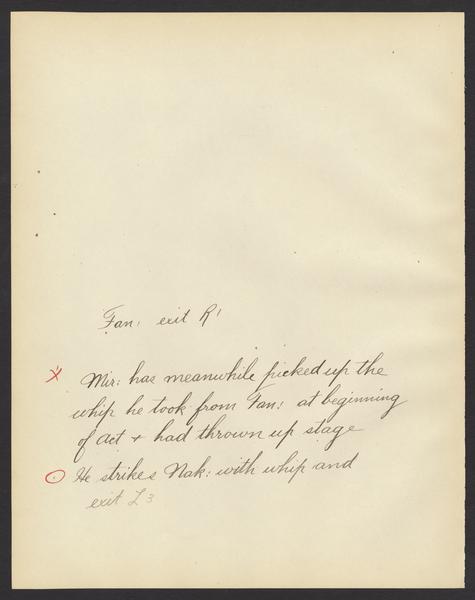 Fan: exit R1
X Mir: has meanwhile picked up the
whip he took from Fan: at beginning
of act + had thrown up stage
He strikes Nak: with whip and
exit L3